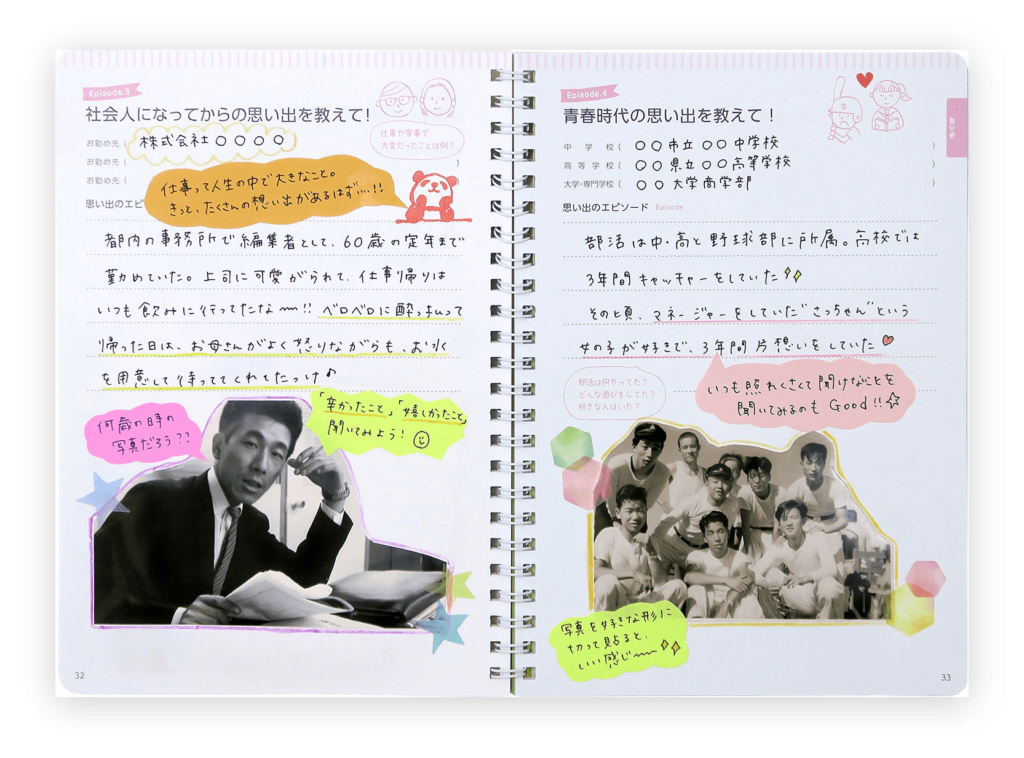 Episode.3
社会人になってからの思い出を教えて!
お勤め先 ( 株式会社〇〇〇〇
お勤め先 (
お勤め先 ( )
仕事や家事で
大変だったことは何?
仕事って人生の中で大きなこと。
きっと、たくさんの想い出があるはず…!!
思い出のエピ
都内の事務所で編集者として、60歳の定年まで
勤めていた。上司に可愛がられて、仕事帰りは
いつも飲みに行ってたな〜!! ベロベロに酔っぱらって
帰った日は、お母さんがよく怒りながらも、お水
を用意して待っててくれてたっけ♪
何歳の時の
写真だろう??
「辛かったこと」「嬉しかったこと」
聞いてみよう!
32
Episode.4
青春時代の思い出を教えて!
中学校 ( 〇〇市立〇〇中学校 )
高等学校 ( 〇〇県立〇〇高等学校 )
大学・専門学校 ( 〇〇大学商学部 )
思い出のエピソード Episode
部活は中・高と野球部に所属。高校では
3年間キャッチャーをしていた
その頃、マネージャーをしていた"さっちゃん"という
女の子が好きで、3年間片想いをしていた
部活は何やってた?
どんな遊びをしてた?
好きな人はいた?
いつも照れくさくて聞けないことを
聞いてみるのもGood!!☆
写真を好きな形に
切って貼ると、
いい感じ〜
33
S